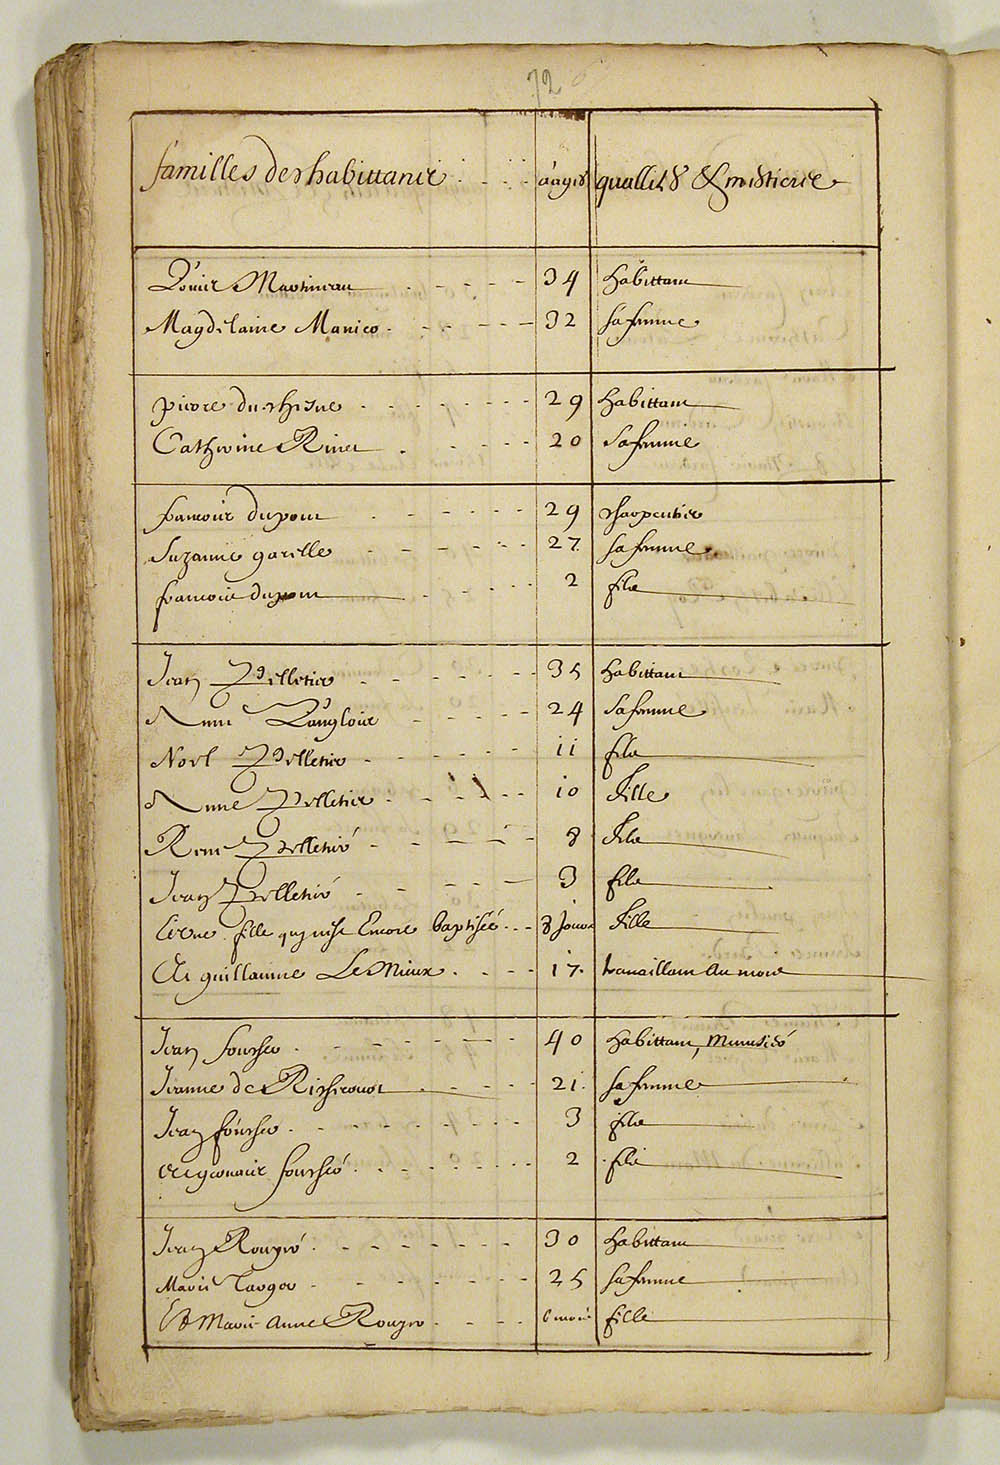 72
familles des habittants aages quallités & mestiers
Louis Martineau 34 habittant
Magdelaine Manico 32 sa femme
pierre du chesne 29 habittant
Catherine Rivet 20 sa femme
francois dupont 29 charpentier
Suzanne garelle 27 sa femme
francois dupont 2 fils
Jean Pelletier 35 habittant
Anne Langlois 24 sa femme
Noel Pelletier 11 fils
Anne Pelletier 10 fille
Rene Pelletier 8 fils
Jean Pelletier 3 fils
fille qui n'est Encore baptisée 8 jours fille
guillaume Le Mieux 17 travaillant au mois
Jean foucher 40 habittant, Munsier
Jeanne de Richecourt 21 sa femme
Jean foucher 3 fils
foucher 2 fils
Jean Rouger 30 habittant
Marie Targer 25 sa femme
Et Marie Anne Rouger 6 mois fille